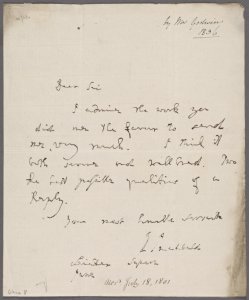 by Mr Godwin
1836
Dear Sir
I admire the work you
did me the favour to send
me, very much. I think it
both and well bred. Two
the best possible qualities of a
Reply.
Your most humble Servant
Square
Mond July 18. 1801